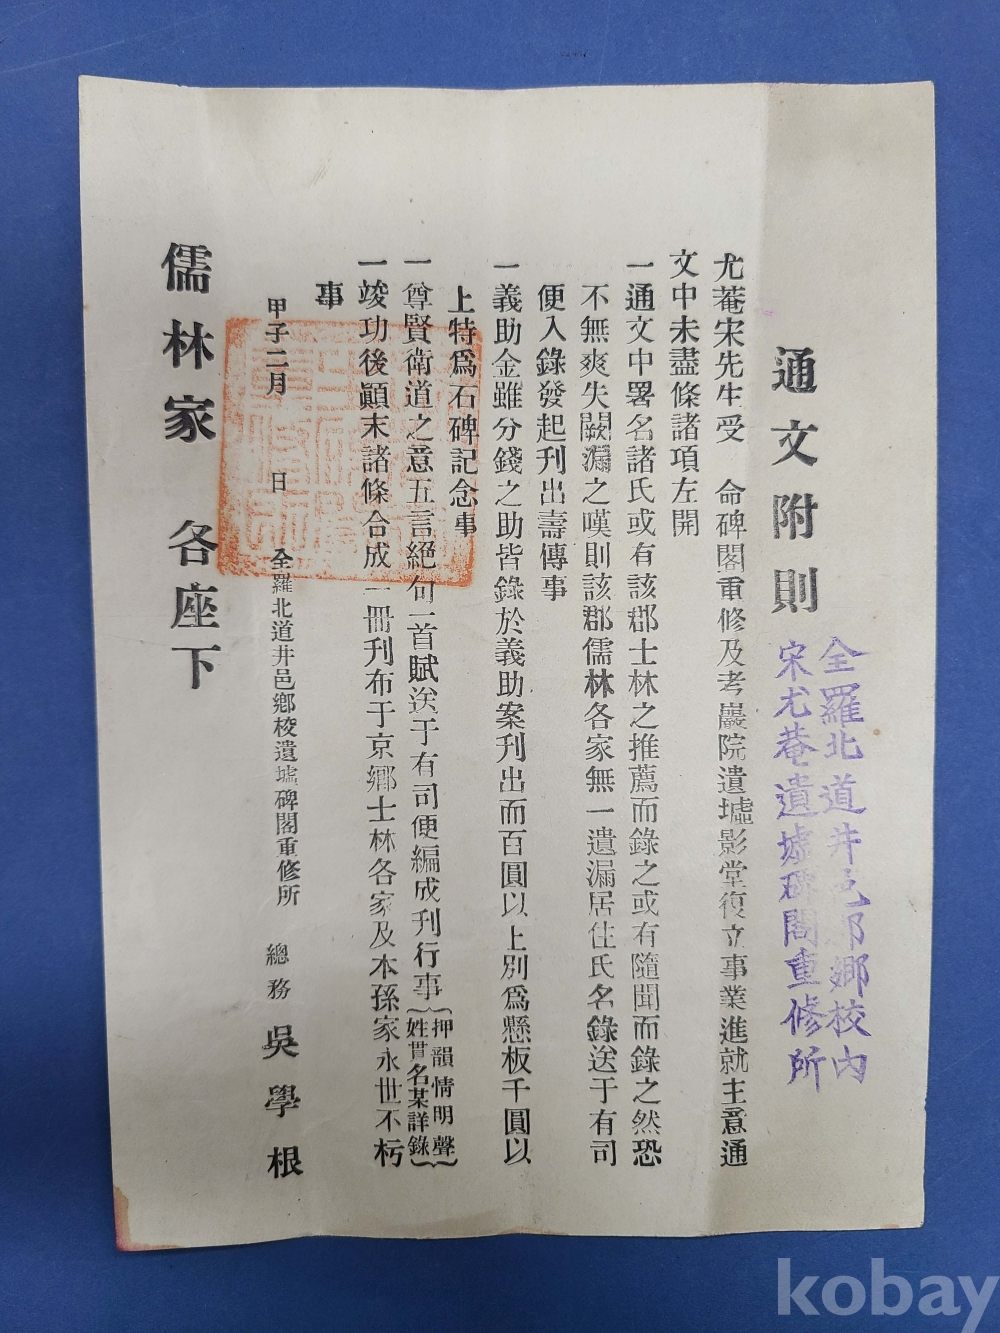 通文附則
全羅北道井邑郡鄕校內
宋尤菴遺墟碑閣重修所
尤菴宋先生受　命碑閣重修及考巖院遺墟影堂復立事業進就主意通
文中未盡條諸項左開
一通文中署名諸氏或有該郡士林之推薦而錄之或有隨聞而錄之然恐
不無爽失闕漏之嘆則該郡儒林各家無一遺漏居住氏名錄送于有司
便入錄發起刊出壽傳事
一義助金雖分錢之助皆錄於義助案刊出而百圓以上別爲懸板千圓以
上特爲石碑記念事
一尊賢衛道之意五言絕句一首賦送于有司便編成刊行事(押韻情明聲
姓貫名某詳錄)
一竣功後顚末諸條合成一冊刊布于京鄕士林各家及本孫家永世不朽
事
甲子二月　日　全羅北道井邑鄕校遺墟碑閣重修所　總務　吳學根
儒林家　各座下
kobay